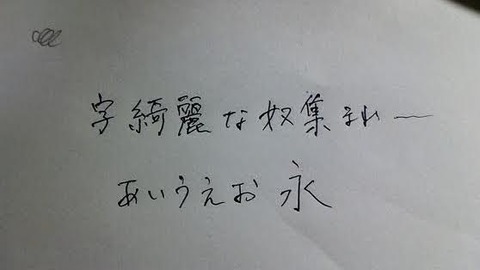 字綺麗な奴集まれ〜
あいうえお 永